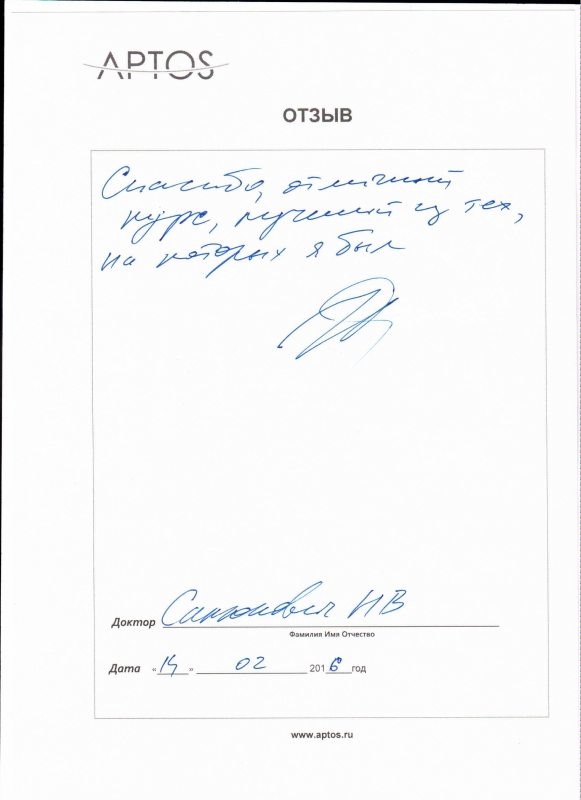 APTOS
ОТЗЫВ
Спасибо, отличный
курс, лучший из тех,
на которых я был
Доктор НВ
Фамилия Имя Отчество
Дата «14» 02 2016 год
www.aptos.ru